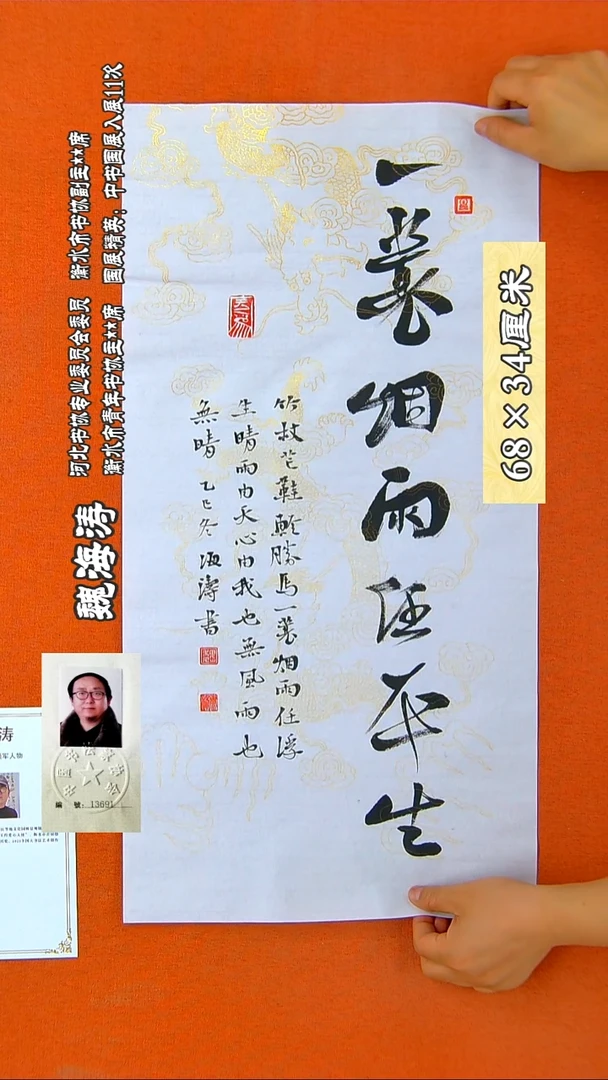 一蓑烟雨任平生
竹杖芒鞋輕勝馬一蓑烟雨任浮
生晴雨由天心由我也無風雨也
無晴 乙巳冬 海濤書
68×34厘米
魏海涛
河北书协专业委员会委员 衡水市书协副主**席
衡水市青年书协主**席 国展精英：中书国展入展11次
編 號：13691
涛
军人物